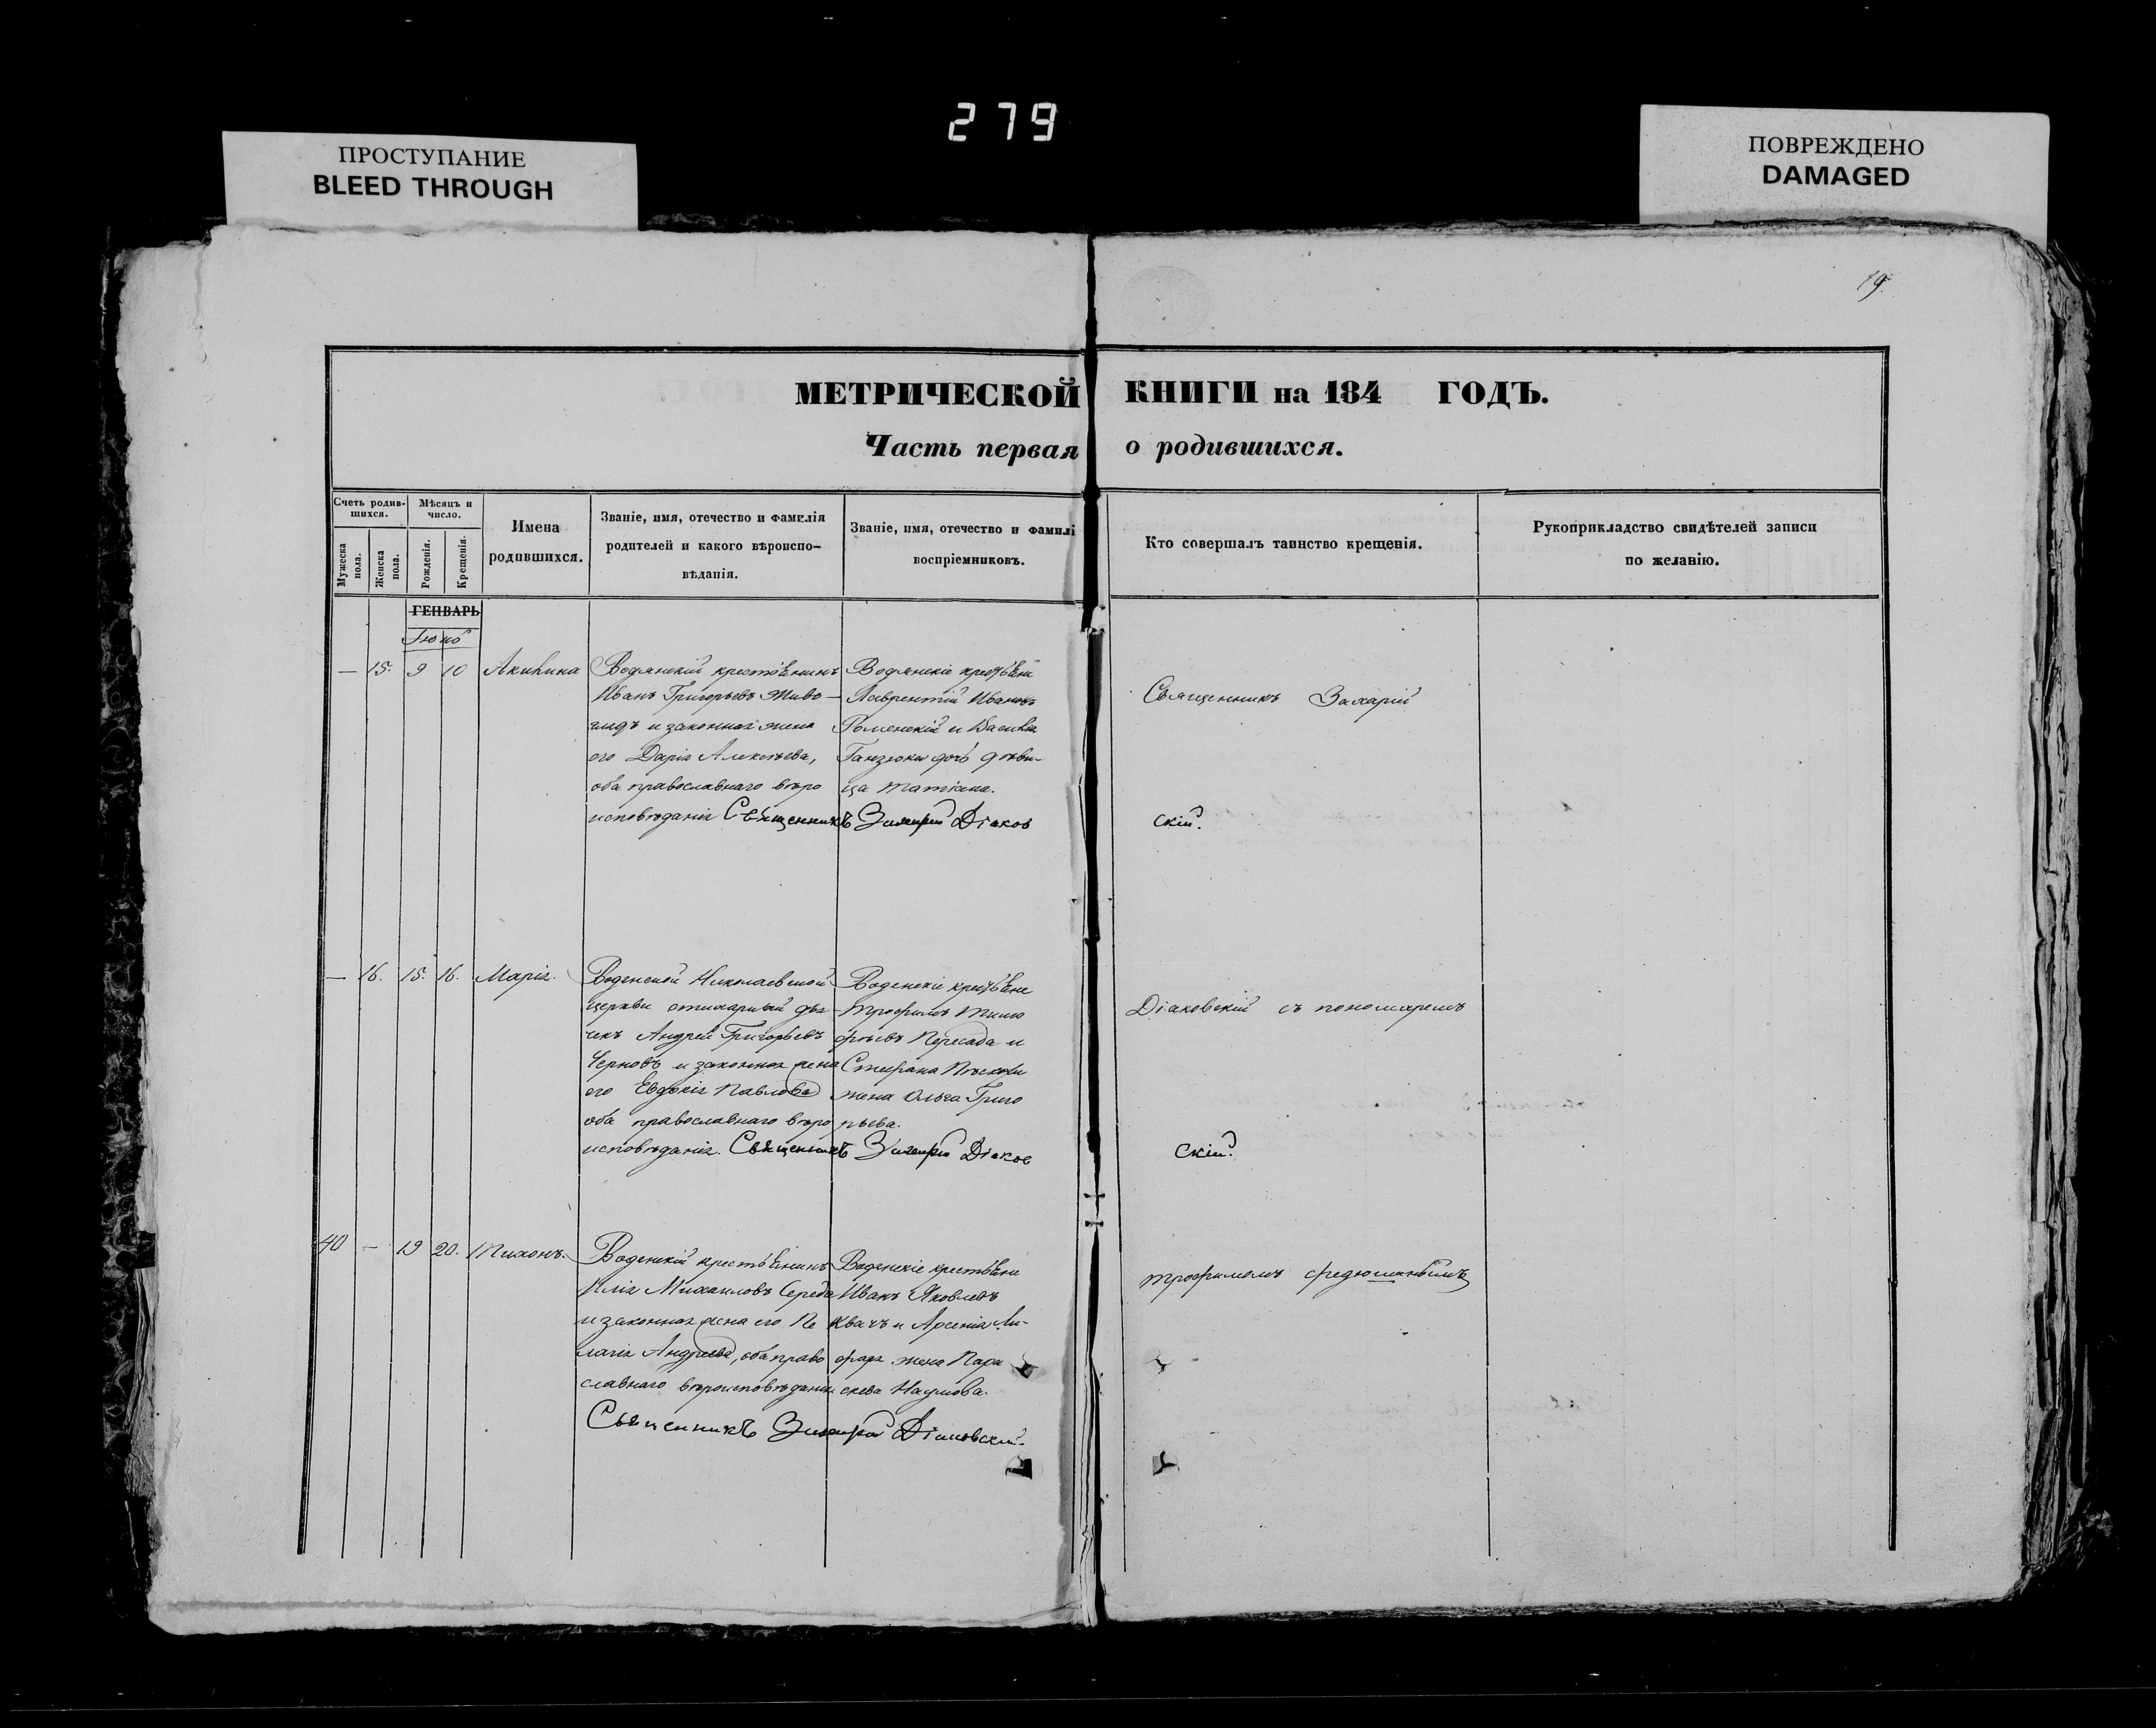 279
ПРОСТУПАНИЕ
BLEED THROUGH
ПОВРЕЖДЕНО
DAMAGED
19.
МЕТРИЧЕСКОЙ КНИГИ на 184 ГОДЪ.
Часть первая о родившихся.
Счетъ родив-
шихся.
Мужеска
пола.
Женска
пола.
Мѣсяцъ и
число.
Рожденія.
Крещенія.
Имена
родившихся.
Званіе, имя, отечество и фамилія
родителей и какого вѣроиспо-
вѣданія.
Званіе, имя, отечество и фамилі
воспріемниковъ.
Кто совершалъ таинство крещенія.
Рукоприкладство свидѣтелей записи
по желанію.
ГЕНВАРЬ
— 15. 9 10 Акилина
Водянскій крестьянинъ
Иванъ Григорьевъ Живо-
глядъ и законная жена
его Дарія Алексѣева,
оба православнаго вѣро
исповѣданія
Водянскіе
Лаврентій Ивановъ
Роменскій и
дочь дѣви-
ца Татіана.
Священникъ Захарій Діаков
скій.
Священникъ Захарій
— 16. 15. 16. Марія.
Водянской Николаевской
церкви стихарный дья-
чекъ Андрей Григорьевъ
Черновъ и законная жена
его Евдокія Павлова
оба православнаго вѣро
исповѣданія.
Водянскіе
Трофимъ Тимо
фѣевъ Пересада и
Стефана
жена Ольга Григо
рьева.
Священникъ Захарій Діаков
скій.
Діаковскій съ пономаремъ
40 — 19 20. Тихонъ.
Водянскій крестьянинъ
Илія Михаиловъ Середа
и законная жена его Пе
лагія Андреева, оба право
славнаго вѣроисповѣданія
Водянскіе крестьяне
Иванъ Яковлевъ
Квачъ и Арсенія Ли-
жена Пара
скева Наумова.
Священникъ Захарій Діаковскій.
Трофимомъ